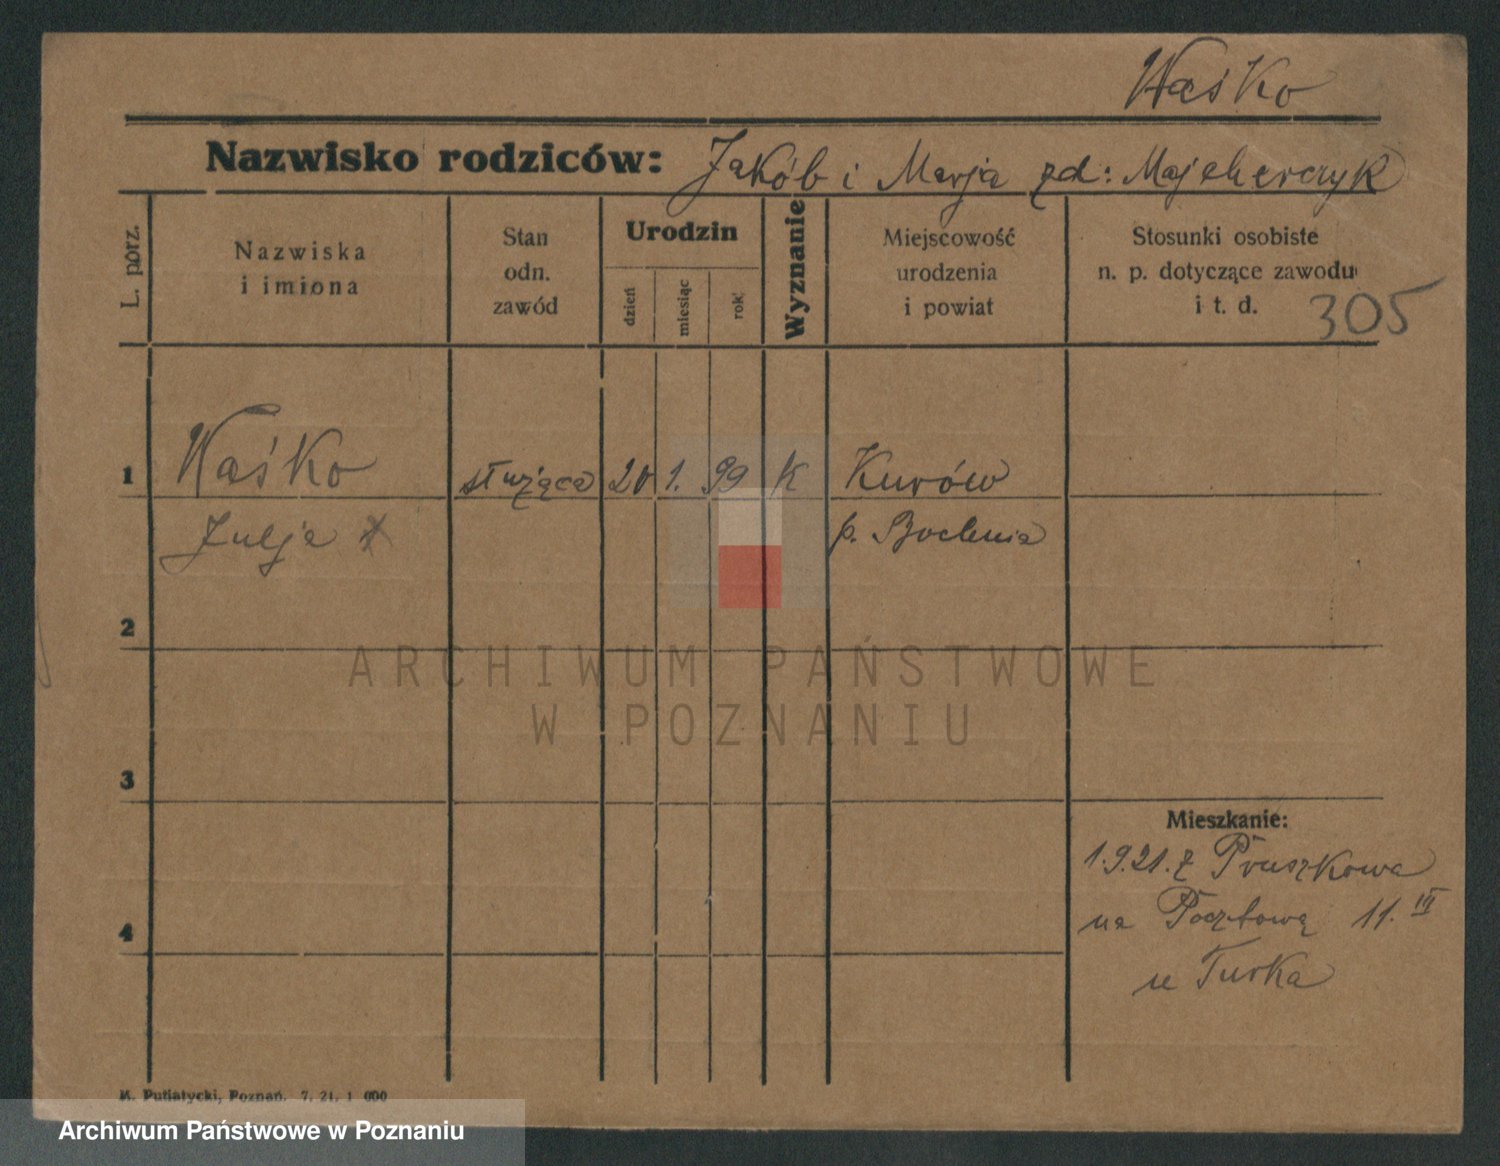 Waśko
Nazwisko rodziców: Jakób i Marja zd: Majcherczyk
L. porz.
Nazwiska
i imiona
Stan
odn.
zawód
Urodzin
dzień
miesiąc
rok
Wyznanie
Miejscowość
urodzenia
i powiat
Stosunki osobiste
n. p. dotyczące zawodu
i t. d.
305
1 Waśko służąca 20 1. 99 K Kurów
Julja p. Bochnia
2
3
4
Mieszkanie:
1.9.21. z Pruszkowa
na Pocztową 11. III
u Turka
K. Putiatycki, Poznań. 7. 21. 1 000
ARCHIWUM PAŃSTWOWE
W POZNANIU
Archiwum Państwowe w Poznaniu